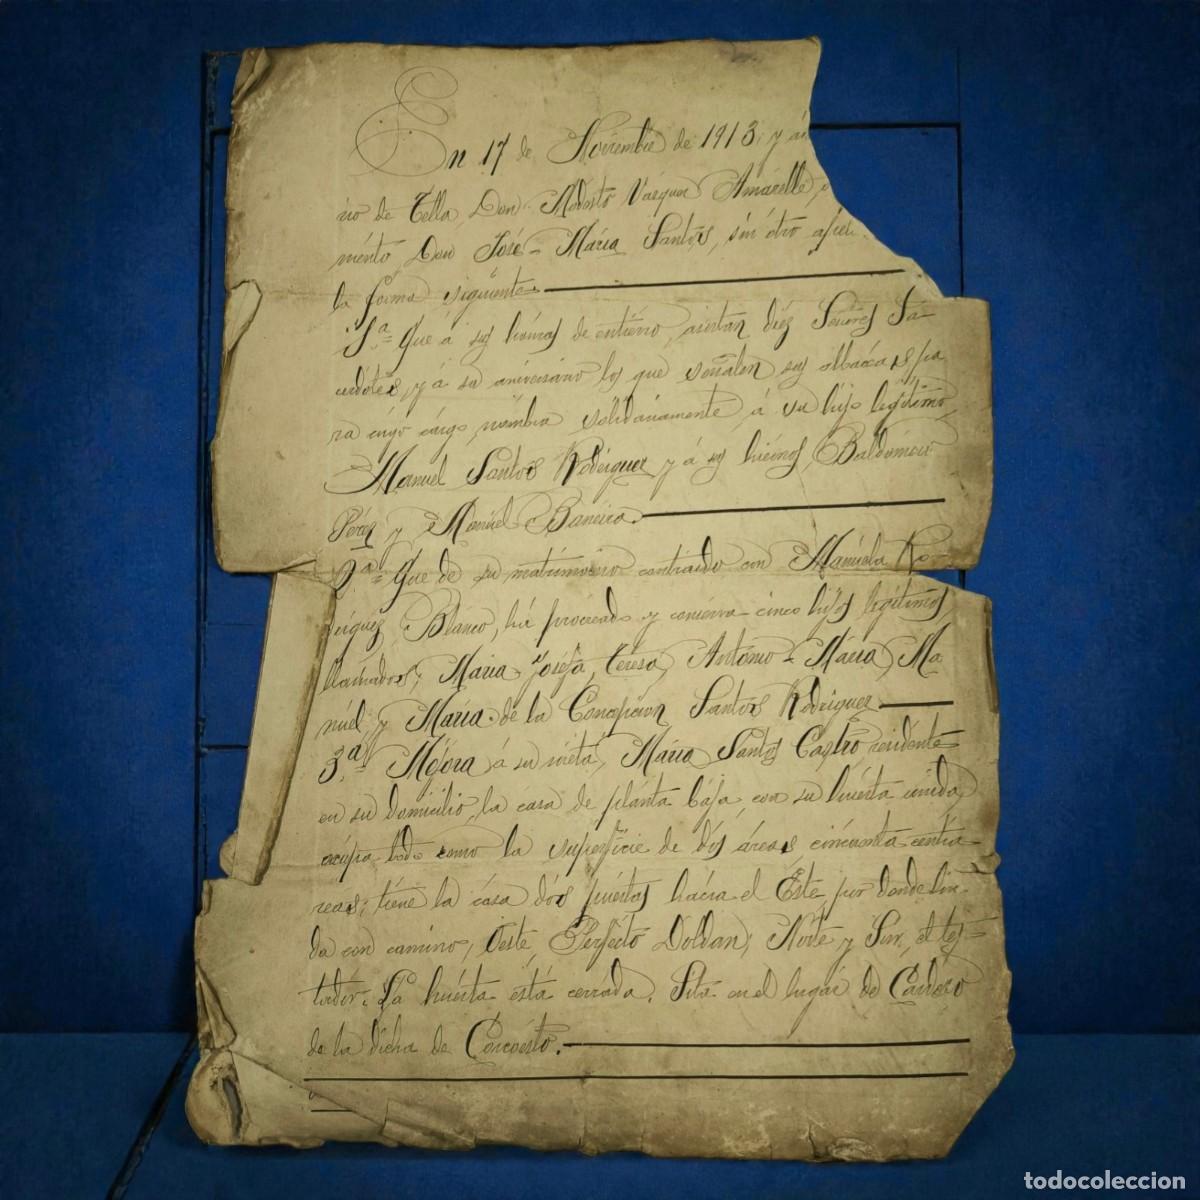 En 17 de Noviembre de 1913, y an
rio de Tella, Don Modesto Vázquez Amarelle,
mento, Don José-María Santos, sin otro
la forma siguiente.
1.ª Que á sus honras de entierro, asistan diez Señores Sa-
cerdotes, y á su aniversario los que señalen sus albaceas, pa
ra cuyo cargo, nombra solidariamente á su hijo legítimo,
Manuel Santos Rodriguez y á sus hiernos, Baldomero
Pérez y Manuel Baneira.
2.ª Que de su matrimonio contraido con Manuela Ro-
riguez Blanco, há procreado y conserva cinco hijos legítimos
llamados, Maria Josefa, Teresa, Antonio-Maria, Ma
nuel, y Maria de la Concepcion Santos Rodriguez.
3.ª Mejora á su nieta, Maria Santos Castro, residente
en su domicilio, la casa de planta baja, con su huerta unida,
ocupa todo como la superficie de dos áreas cincuenta centiá-
reas; tiene la casa dos puertas hacia el Este por donde lin-
da con camino, Oeste, Perfecto Doldan, Norte y Sur, el tes-
tador. La huerta está cerrada. Sita en el lugar de Cardezo
de la dicha de Corcoesto.
todocoleccion